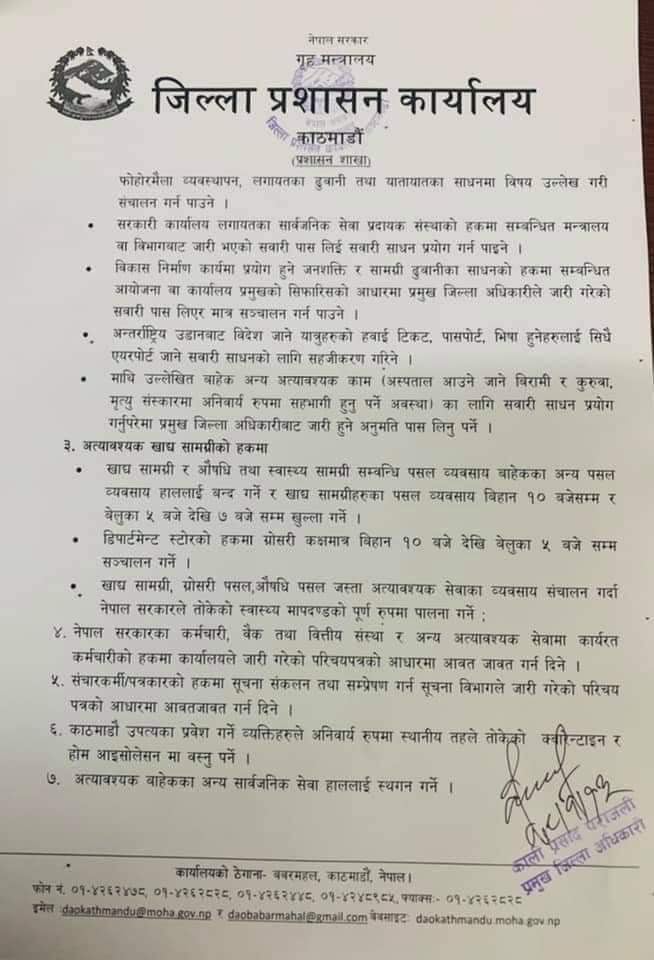 नेपाल सरकार
गृह मन्त्रालय
जिल्ला प्रशासन कार्यालय
काठमाडौं
(प्रशासन शाखा)
फोहोरमैला व्यवस्थापन, लगायतका ढुवानी तथा यातायातका साधनमा विषय उल्लेख गरी
संचालन गर्न पाउने ।
• सरकारी कार्यालय लगायतका सार्वजनिक सेवा प्रदायक संस्थाको हकमा सम्बन्धित मन्त्रालय
वा विभागबाट जारी भएको सवारी पास लिई सवारी साधन प्रयोग गर्न पाइने ।
• विकास निर्माण कार्यमा प्रयोग हुने जनशक्ति र सामग्री ढुवानीका साधनको हकमा सम्बन्धित
आयोजना वा कार्यालय प्रमुखको सिफारिसको आधारमा प्रमुख जिल्ला अधिकारीले जारी गरेको
सवारी पास लिएर मात्र सञ्चालन गर्न पाउने ।
• अन्तर्राष्ट्रिय उडानबाट विदेश जाने यात्रुहरुको हवाई टिकट, पासपोर्ट, भिषा हुनेहरुलाई सिधै
एयरपोर्ट जाने सवारी साधनको लागि सहजीकरण गरिने ।
• माथि उल्लेखित बाहेक अन्य अत्यावश्यक काम (अस्पताल आउने जाने बिरामी र कुरुवा,
मृत्यु संस्कारमा अनिवार्य रुपमा सहभागी हुनु पर्ने अवस्था) का लागि सवारी साधन प्रयोग
गर्नुपरेमा प्रमुख जिल्ला अधिकारीबाट जारी हुने अनुमति पास लिनु पर्ने ।
३. अत्यावश्यक खाद्य सामग्रीको हकमा
• खाद्य सामग्री र औषधि तथा स्वास्थ्य सामग्री सम्बन्धि पसल व्यवसाय बाहेकका अन्य पसल
व्यवसाय हाललाई बन्द गर्ने र खाद्य सामग्रीहरुका पसल व्यवसाय विहान १० बजेसम्म र
बेलुका ५ बजे देखि ७ बजे सम्म खुल्ला गर्ने ।
• डिपार्टमेन्ट स्टोरको हकमा ग्रोसरी कक्षमात्र विहान १० बजे देखि बेलुका ५ बजे सम्म
सञ्चालन गर्ने ।
• खाद्य सामग्री, ग्रोसरी पसल,औषधि पसल जस्ता अत्यावश्यक सेवाका व्यवसाय संचालन गर्दा
नेपाल सरकारले तोकेको स्वास्थ्य मापदण्डको पूर्ण रुपमा पालना गर्ने ;
४. नेपाल सरकारका कर्मचारी, बैक तथा वित्तीय संस्था र अन्य अत्यावश्यक सेवामा कार्यरत
कर्मचारीको हकमा कार्यालयले जारी गरेको परिचयपत्रको आधारमा आवत जावत गर्न दिने ।
५. संचारकर्मी/पत्रकारको हकमा सूचना संकलन तथा सम्प्रेषण गर्न सूचना विभागले जारी गरेको परिचय
पत्रको आधारमा आवतजावत गर्न दिने ।
६. काठमाडौं उपत्यका प्रवेश गर्ने व्यक्तिहरुले अनिवार्य रुपमा स्थानीय तहले तोकेको क्वारेन्टाइन र
होम आइसोलेसन मा वस्नु पर्ने ।
७. अत्यावश्यक बाहेकका अन्य सार्वजनिक सेवा हाललाई स्थगन गर्ने ।
काली प्रसाद पराजली
प्रमुख जिल्ला अधिकारी
कार्यालयको ठेगाना- बबरमहल, काठमाडौं, नेपाल।
फोन नं. ०१-४२६२४७८, ०१-४२६२८२८, ०१-४२६२४४८, ०१-४२४८९८५, फ्याक्सः- ०१-४२६२८२८
इमेल :daokathmandu@moha.gov.np र daobabarmahal@gmail.com वेबसाइटः daokathmandu.moha.gov.np